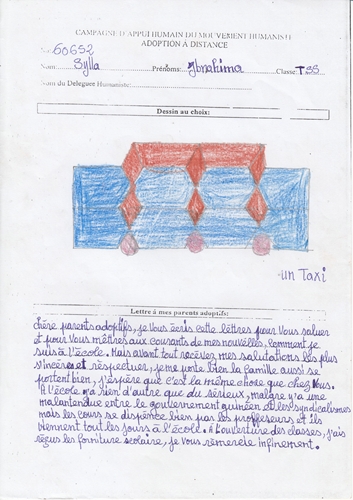 CAMPAGNE D'APPUI HUMAIN DU MOUVEMENT HUMANISTE
ADOPTION A DISTANCE
60652
Nom: Sylla Prénoms: Ibrahima Classe: TSS
Nom du Délégué Humaniste:
Dessin au choix:
un Taxi
Lettre à mes parents adoptifs:
chère parents adoptifs, je vous écris cette lettres pour vous saluer
et pour vous mêttres aux courants de mes nouvelles, comment je
suis à l'école. Mais avant tout recever mes salutations les plus
sincères et respectuer, je me porte bien la famille aussi se
portent bien, j'espère que c'est la même chose que chez vous.
A l'école y'a rien d'autre que du sérieux, malgre y'a une
malentendue entre le gouvernement guinéen et les syndicalismes
mais les cours se dispence bien par les proffeseurs et ils
viennent tout les jours à l'école. A l'ouverture des classes, j'ais
reçus les forniture scolaire, je vous remercie infinement.